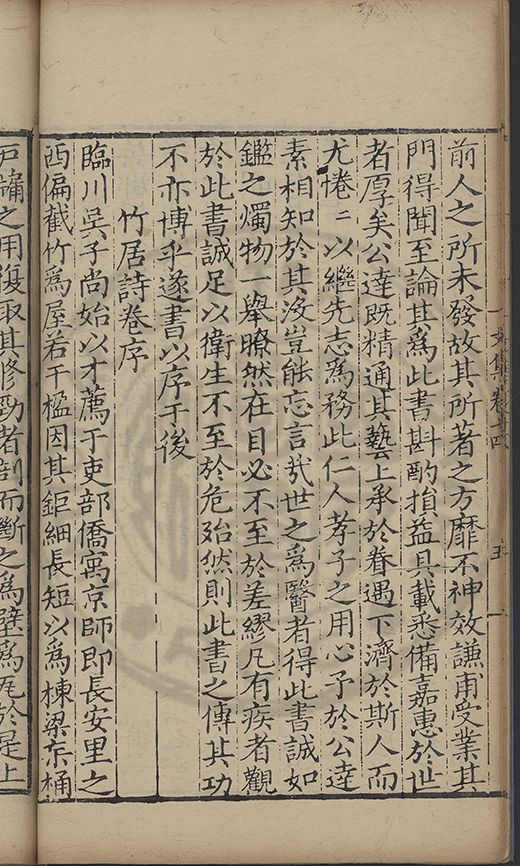 集卷廿四
五
前人之所未發故其所著之方靡不神效謙甫受業其
門得聞至論其爲此書斟酌損益具載悉備嘉惠於世
者厚矣公達既精通其藝上承於眷遇下濟於斯人而
尤惓〻以繼先志爲務此仁人孝子之用心予於公達
素相知於其沒豈能忘言哉世之爲醫者得此書誠如
鑑之燭物一舉瞭然在目必不至於差繆凡有疾者觀
於此書誠足以衛生不至於危殆然則此書之傳其功
不亦博乎遂書以序于後
竹居詩卷序
臨川吳子尚始以才薦于吏部僑寓京師即長安里之
西偏截竹爲屋若干楹因其鉅細長短以爲棟梁桶
戶牖之用復取其修勁者剖而斷之爲壁爲瓦於是上